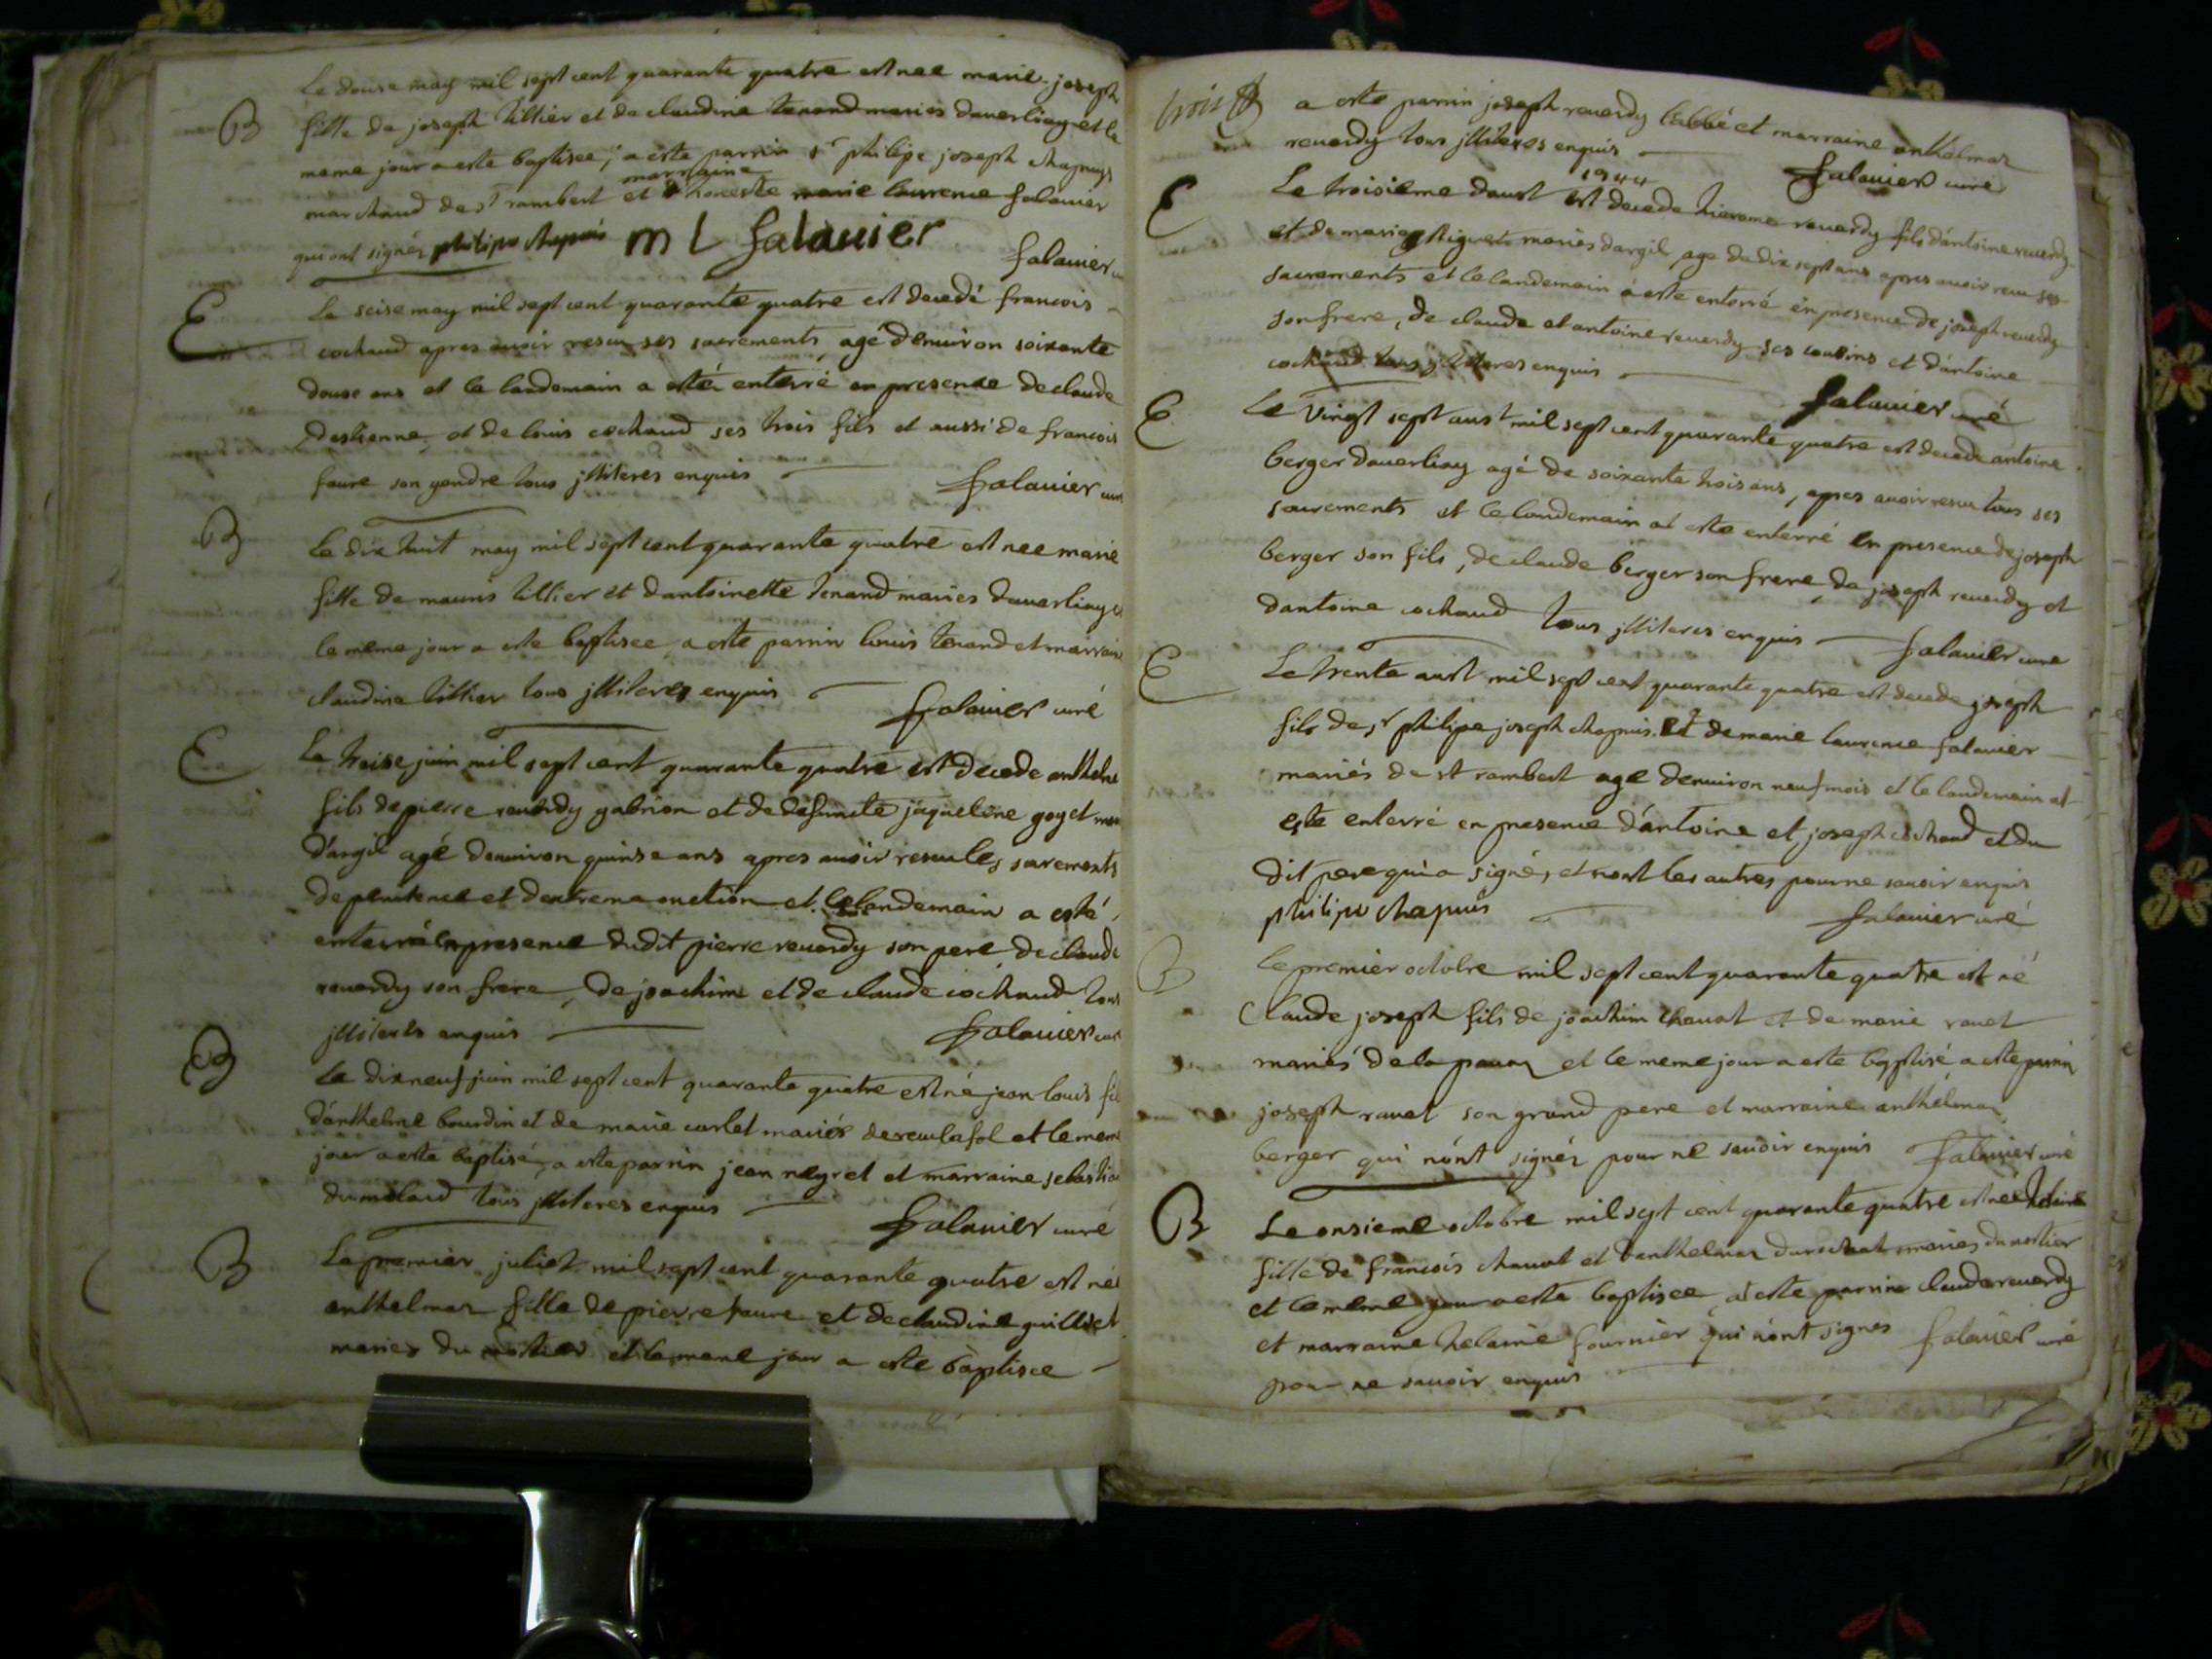 Le douse may mil sept cent quarante quatre est nee marie joseph
B
fille de joseph tillier et de claudine tenand maries daverliay et le
meme jour a este baptisee, a este parrin sr philipe joseph chapuys
marraine
marchand de st rambert et honeste marie laurence falavier
qui ont signéz philipe chapuis m l falavier
falavier
E
Le seise may mil sept cent quarante quatre est decedé francois
cochaud apres avoir resceu ses sacrements, agé denviron soixante
douse ans et le landemain a esté enterré en presence de claude
destienne, et de louis cochaud ses trois fils et aussi de francois
faure son gendre tous jlliteres enquis
falavier curé
B
Le dix huit may mil sept cent quarante quatre est nee marie
fille de mauris tillier et dantoinette tenand maries daverliay et
le meme jour a este baptisee, a este parrin louis tenand et marraine
claudine tillier tous jlliteres enquis
falavier curé
E
Le treise juin mil sept cent quarante quatre est decede anthelme
fils de pierre reverdy gabrion et de defuncte jaqueline goyet
d'argil agé denviron quinse ans apres avoir resceu les sacrements
de penitence et dextreme onction et le landemain a esté
enterré en presence dudit pierre reverdy son pere, de claude
reverdy son frere, de joachim et de claude cochaud tous
jlliteres enquis
falavier curé
B
Le dix neuf juin mil sept cent quarante quatre est né jean louis fils
d'anthelme bourdin et de marie carlet mariés desculafol et le meme
jour a este baptisé, a este parrin jean neyret et marraine
dumolard tous jlliteres enquis
falavier curé
B
Le premier juliet mil sept cent quarante quatre est née
anthelmaz fille de pierre faure et de claudine guilliet
maries du et le meme jour a este baptisee
trois
a este parrin joseph reverdy l'abbé et marraine anthelmaz
reverdy tous jlliteres enquis
falavier curé
1744
E
Le troisieme daust est decede hierome reverdy fils dantoine reverdy
et de marie maries dargil, age de dix sept ans apres avoir receu ses
sacrements et le landemain a este enterré en presence de joseph reverdy
son frere, de claude et antoine reverdy ses cousins et d'antoine
cochaud tous jlliteres enquis
falavier curé
E
Le vingt sept aust mil sept cent quarante quatre est decede antoine
berger daverliay agé de soixante trois ans, apres avoir resceu tous ses
sacrements et le landemain at este enterré en presence de joseph
berger son fils, de claude berger son frere, de joseph reverdy et
dantoine cochaud tous jlliteres enquis
falavier curé
E
Le trente aust mil sept cent quarante quatre est decede joseph
fils de sr philipe joseph chapuis et de marie laurence falavier
mariés de st rambert age denviron neuf mois et le landemain at
este enterré en presence d'antoine et joseph cochaud et du
dit pere qui a signé, et n'ont les autres pour ne savoir enquis
philipe chapuis
falavier curé
B
Le premier octobre mil sept cent quarante quatre est né
Claude joseph fils de joachim chavat et de marie ravet
mariés de la et le meme jour a este baptisé, a este parrin
joseph ravet son grand pere et marraine anthelmaz
berger qui n'ont signéz pour ne savoir enquis falavier curé
B
Le onsieme octobre mil sept cent quarante quatre est née helaine
fille de francois chavat et danthelmaz durochat maries du
et le meme jour a este baptisee, at este parrin claude reverdy
et marraine helaine fournier qui n'ont signes falavier curé
pour ne savoir enquis